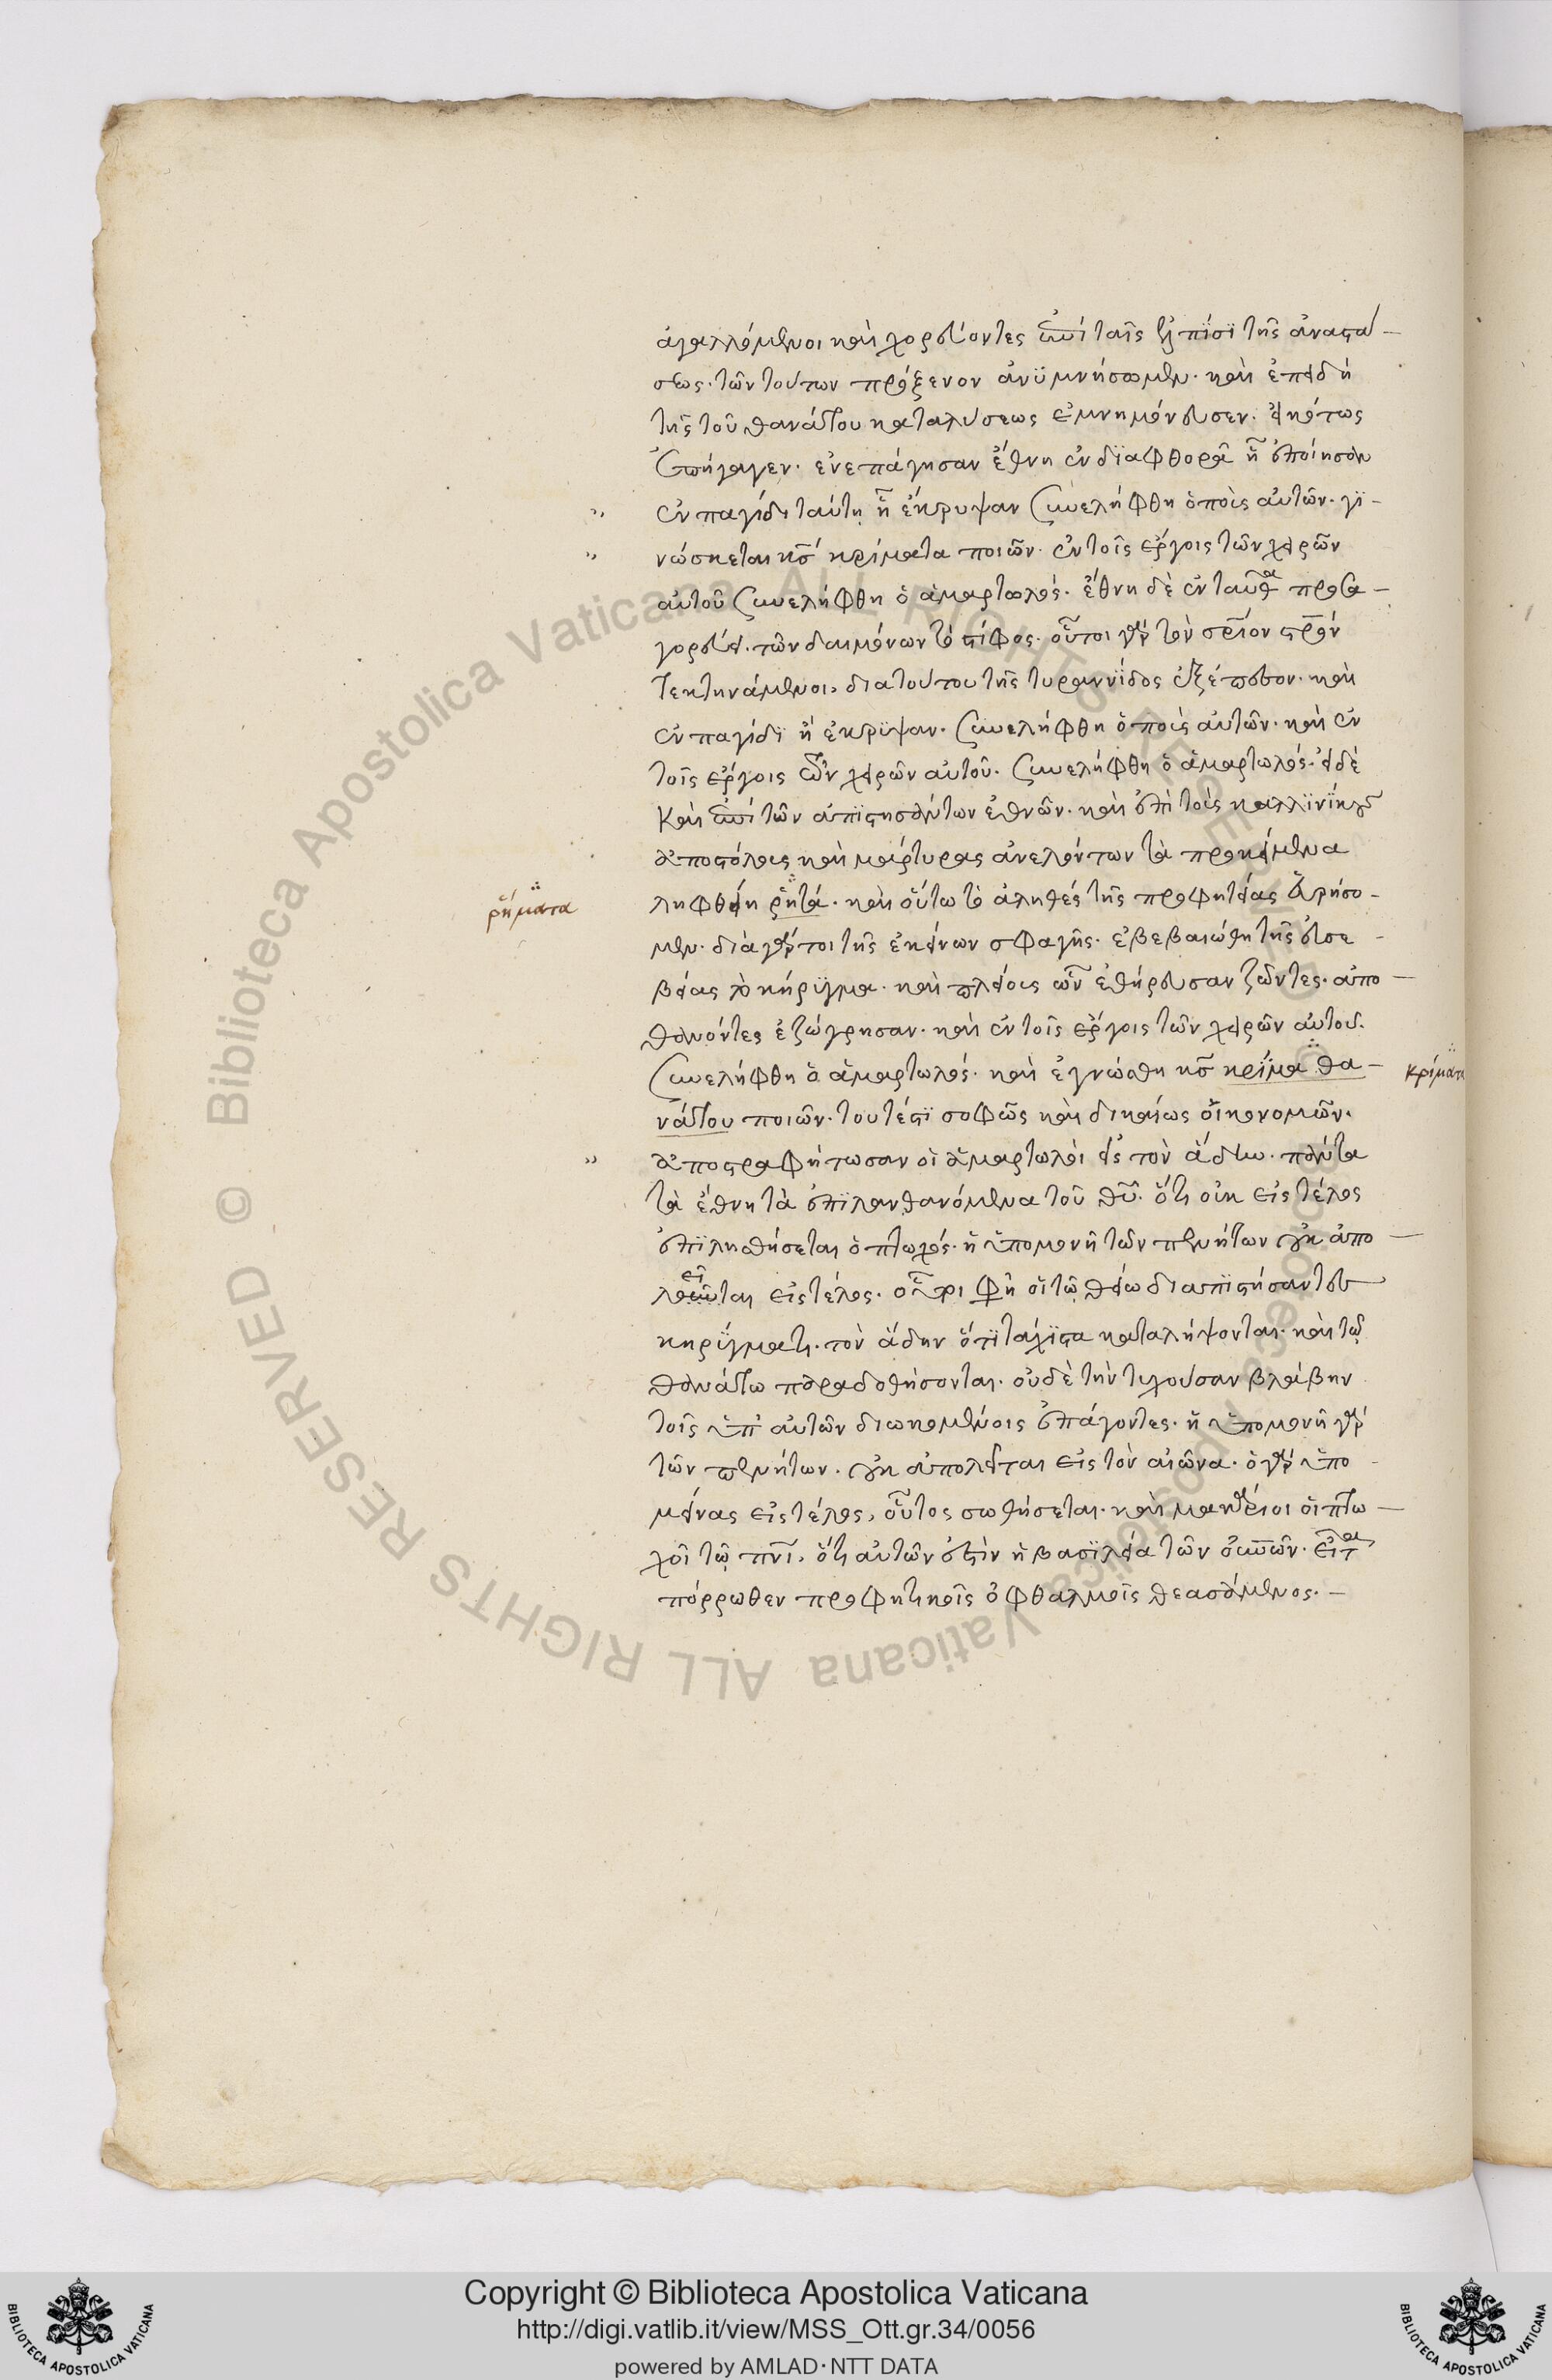 ἀγαλλόμενοι καὶ χορεύοντες ἐπὶ ταῖς ἐλπίσι τῆς ἀναστά-
σεως. τῶν τούτων πρόξενον ἀνϋμνήσωμεν. καὶ ἐπειδὴ
τῆς τοῦ θανάτου καταλύσεως ἐμνημόνευσεν. εἰκότως
ἐπήγαγεν. ἐνεπάγησαν ἔθνη ἐν διαφθορᾶ ἧ ἐποίησαν
ἐν παγίδι ταύτη ἧ ἔκρυψαν συνελήφθη ὁ ποὺς αὐτῶν. γι-
νώσκεται κς κρίματα ποιῶν. ἐν τοῖς ἔργοις τῶν χειρῶν
αὐτοῦ συνελήφθη ὁ ἁμαρτωλός. ἔθνη δὲ ἐνταῦθα προσα-
γορεύει. τῶν δαιμόνων τὸ στίφος. οὗτοι γὰρ τὸν σριον στρὸν
τεκτηνάμενοι, διὰ τούτου τῆς τυραννίδος ἐξέπεσον. καὶ
ἐν παγίδι ἧ ἔκρυψαν. συνελήφθη ὁ ποὺς αὐτῶν. καὶ ἐν
τοῖς ἔργοις τῶν χειρῶν αὐτοῦ. συνελήφθη ὁ ἁμαρτωλός. εἰ δὲ
καὶ ἐπὶ τῶν ἀπιστησάντων ἐθνῶν. καὶ ἐπὶ τοὺς καλλινίκους
ἀποστόλους καὶ μάρτυρας ἀνελόντων τὰ προκείμενα
ληφθείη ῥητά. καὶ οὕτω τὸ ἀληθὲς τῆς προφητείας εὑρήσο-
ῥήματα
μεν. διὰ γάρ τοι τῆς ἐκείνων σφαγῆς. ἐβεβαιώθη τῆς εὐσε-
βείας τὸ κήρυγμα. καὶ πλείους ὧν ἐθήρευσαν ζῶντες. ἀπο-
θανόντες ἐζώγρησαν. καὶ ἐν τοῖς ἔργοις τῶν χειρῶν αὐτοῦ.
συνελήφθη ὁ ἁμαρτωλός. καὶ ἐγνώσθη κς κρίμα θα-
κρίματα
νάτου ποιῶν. τουτέστι σοφῶς καὶ δικαίως οἰκονομῶν.
ἀποστραφήτωσαν οἱ ἁμαρτωλοὶ εἰς τὸν ἅδην. πάντα
τὰ ἔθνη τὰ ἐπιλανθανόμενα τοῦ θυ. ὅτι οὐκ εἰς τέλος
ἐπιλησθήσεται ὁ πτωχός. ἡ ὑπομονὴ τῶν πενήτων οὐκ ἀπο-
λεῖται εἰς τέλος. φη οἱ τῶ θείω διαπιστήσαντες
κηρύγματι. τὸν ἅδην ὅτι τάχιστα καταλήψονται. καὶ τῶ
θανάτω παραδοθήσονται. οὐδὲ τὴν τυχοῦσαν βλάβην
τοῖς ὑπ' αὐτῶν διωκομένοις ἐπάγοντες. ἡ ὑπομονὴ γὰρ
τῶν πενήτων. οὐκ ἀπολεῖται εἰς τὸν αἰῶνα. ὁ γὰρ ὑπο-
μείνας εἰς τέλος, οὗτος σωθήσεται. καὶ μακάριοι οἱ πτω-
χοὶ τῶ πνι. ὅτι αὐτῶν ἐστὶν ἡ βασιλεία τῶν οὐνῶν. εἶτα
πόρρωθεν προφητικοῖς ὀφθαλμοῖς θεασάμενος.
Copyright © Biblioteca Apostolica Vaticana
http://digi.vatlib.it/view/MSS_Ott.gr.34/0056
powered by AMLAD·NTT DATA